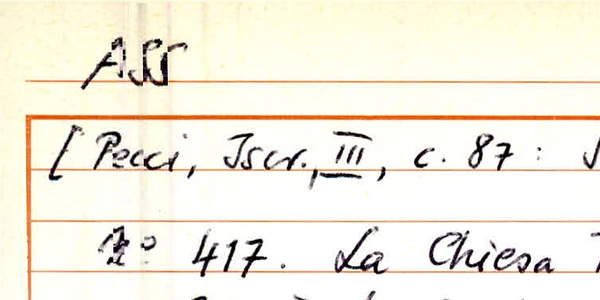 ASS
[Pecci, Iscr., III, c. 87:
N° 417. La Chiesa